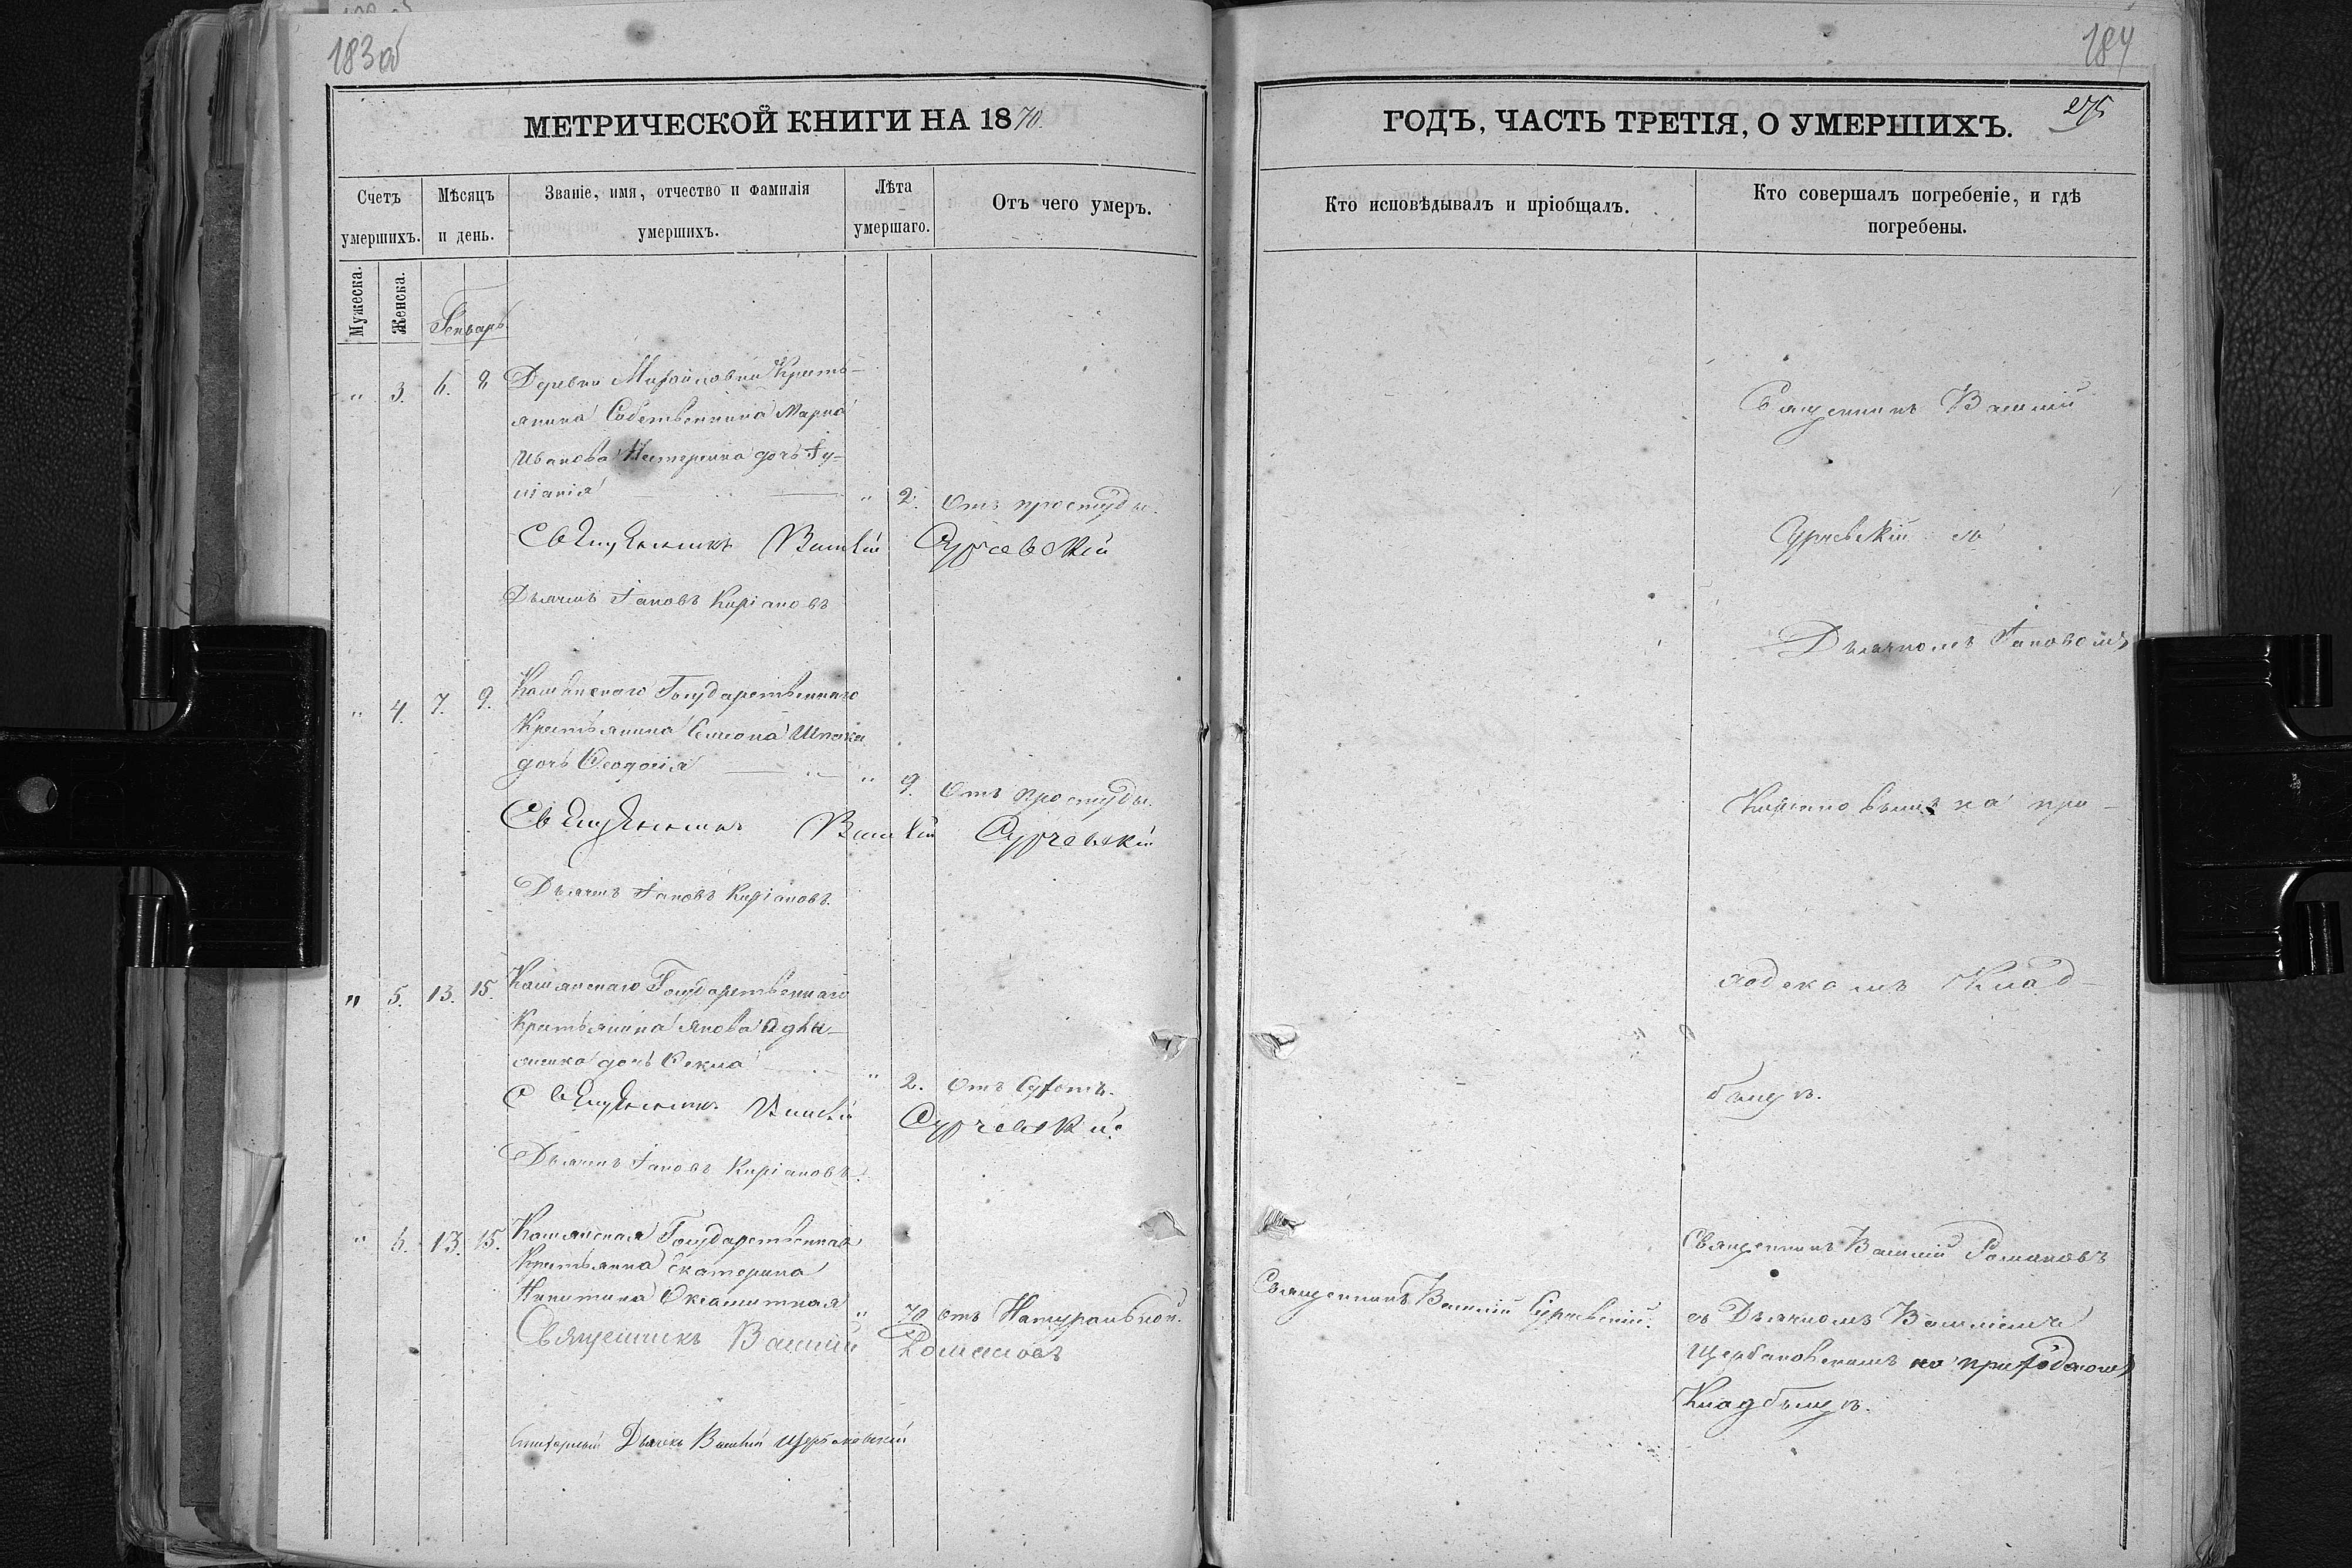 183 об
184
МЕТРИЧЕСКОЙ КНИГИ НА 1870.
ГОДЪ, ЧАСТЬ ТРЕТІЯ, О УМЕРШИХЪ.
275
Счетъ умершихъ.
Мѣсяцъ и день.
Званіе, имя, отчество и фамилія умершихъ.
Лѣта умершаго.
Отъ чего умеръ.
Кто исповѣдывалъ и пріобщалъ.
Кто совершалъ погребеніе, и гдѣ погребены.
Мужеска.
Женска.
Генварь
" 3. 6. 8 Деревни Михайловки Кресть-
янина Собственника Марка
Иванова Нестеренка дочь Іу-
ліанія " 2. Отъ простуды.
Священникъ Василій Сурчевскій
Дьячекъ Іаковъ Киріаковъ
" 4. 7. 9. Государственнаго
Крестьянина Симеона Шпака
дочь Ѳеодосія " 9. Отъ простуды.
Священникъ Василій Сурчевскій
Дьячекъ Іаковъ Киріаковъ.
" 5. 13. 15. Государственнаго
Крестьянина Якова
дочь Ѳекла " 2. Отъ Сухотъ.
Священникъ Василій Сурчевскій
Дьячекъ Іаковъ Киріаковъ.
" 6. 13. 15. Государственная
Крестьянка Екатерина
Никитина Оксамитная " 70 отъ Натуральной.
Священникъ Василій Романовъ
Дьячекъ Василій Щербаковскій
Священникъ Василій
Сурчевскій съ
Дьячкомъ Іаковомъ
Киріаковымъ на при-
ходскомъ Клад-
бищѣ.
Священникъ Василій Сурчевскій.
Священникъ Василій Романовъ
съ Дьячкомъ Василіемъ
Щербаковскимъ на приходскомъ
Кладбищѣ.